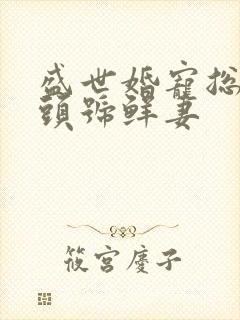 盛世婚寵總
頭號鮮妻
筱宮慶子